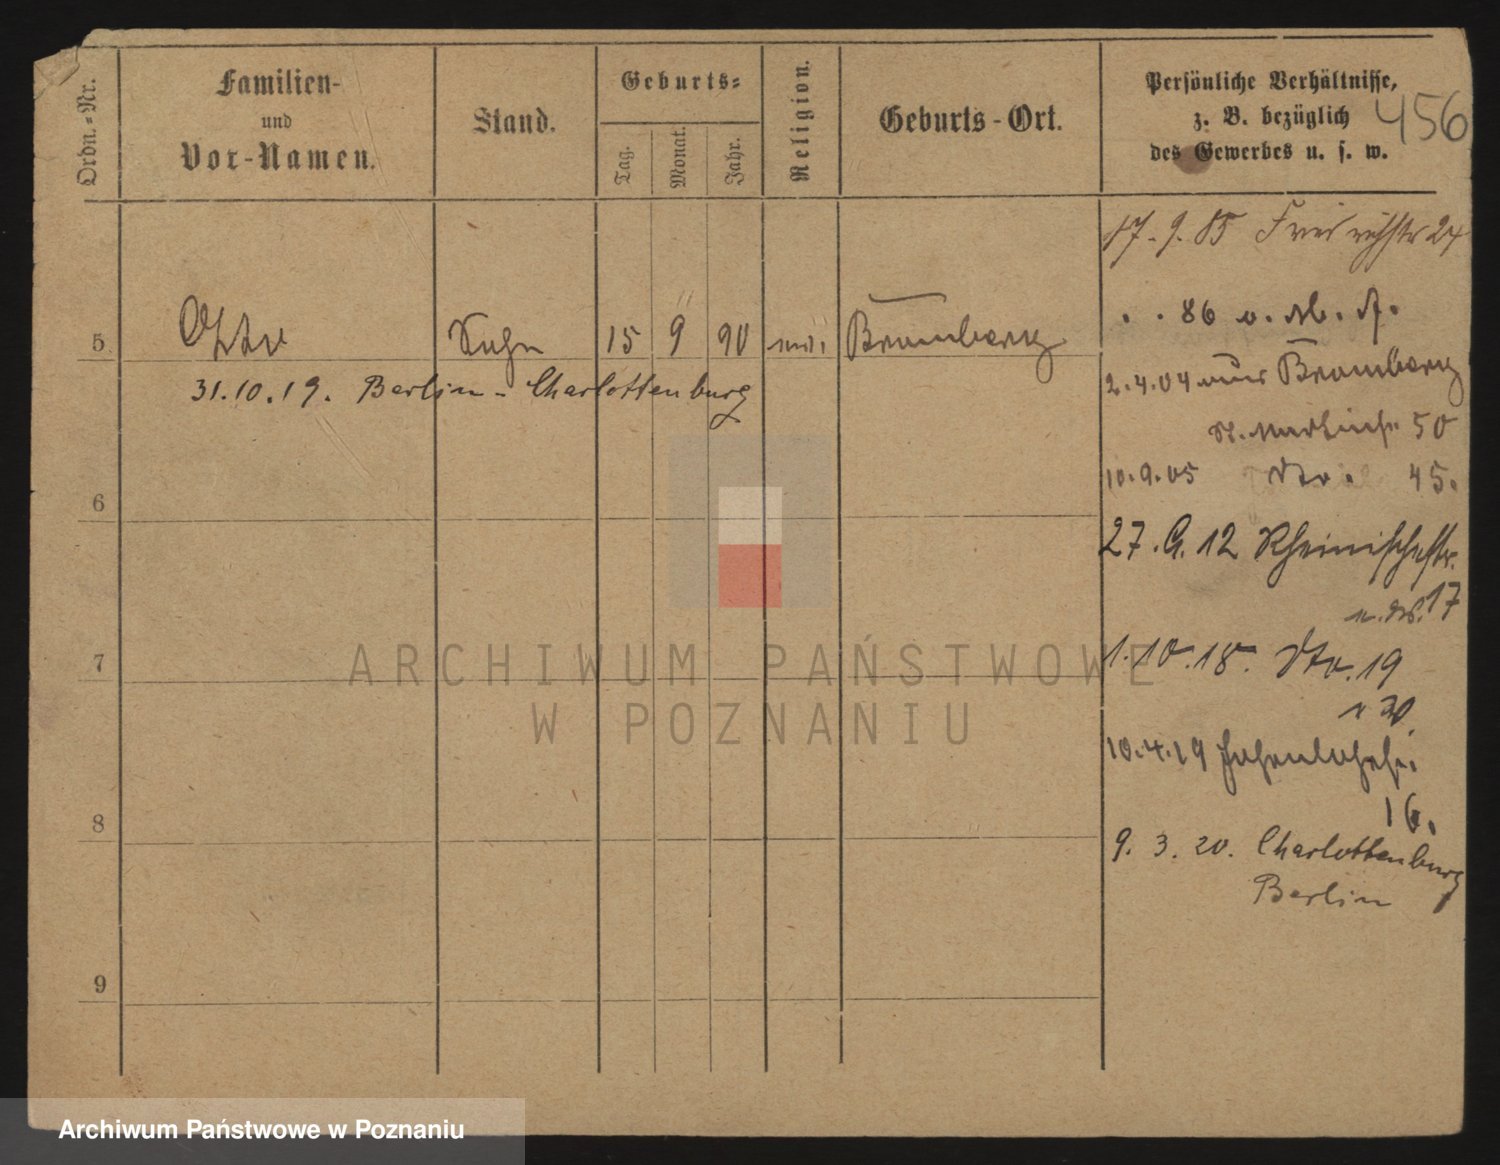 Ordn.-Nr.
Familien-
und
Vor-Namen.
Stand.
Geburts-
Tag.
Monat.
Jahr.
Religion.
Geburts-Ort.
Persönliche Verhältnisse,
z. B. bezüglich
des Gewerbes u. s. w.
456
17. 9. 85
24
5
Otto
Sohn
15
9
90
Bromberg
31.10.19. Berlin-Charlottenburg
. . 86
2.4.04 aus Bromberg
St. Martinstr 50
10.9.05 dto. 45.
6
27. 9. 12 Rheinischestr.
17
7
1.10.18. dto. 19
10.4.19
16.
8
9. 3. 20. Charlottenburg
Berlin
9
ARCHIWUM PAŃSTWOWE
W POZNANIU
Archiwum Państwowe w Poznaniu